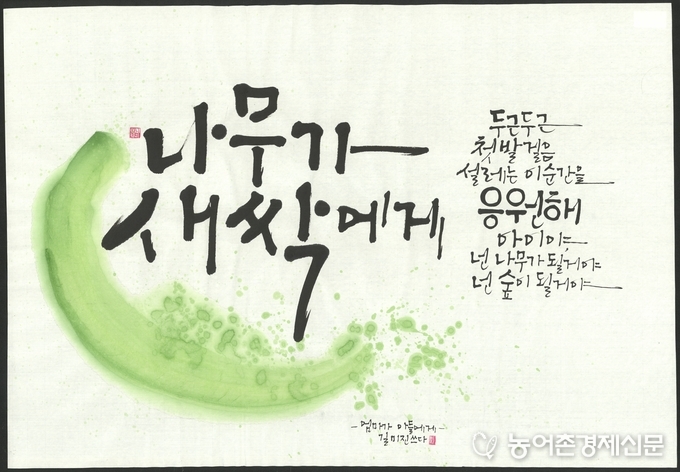 나무가
새싹에게
두근두근
첫 발걸음
설레는 이순간을
응원해
아이야,
넌 나무가 될게야
넌 숲이 될게야
-엄마가 아들에게-
길미진쓰다
농어촌경제신문